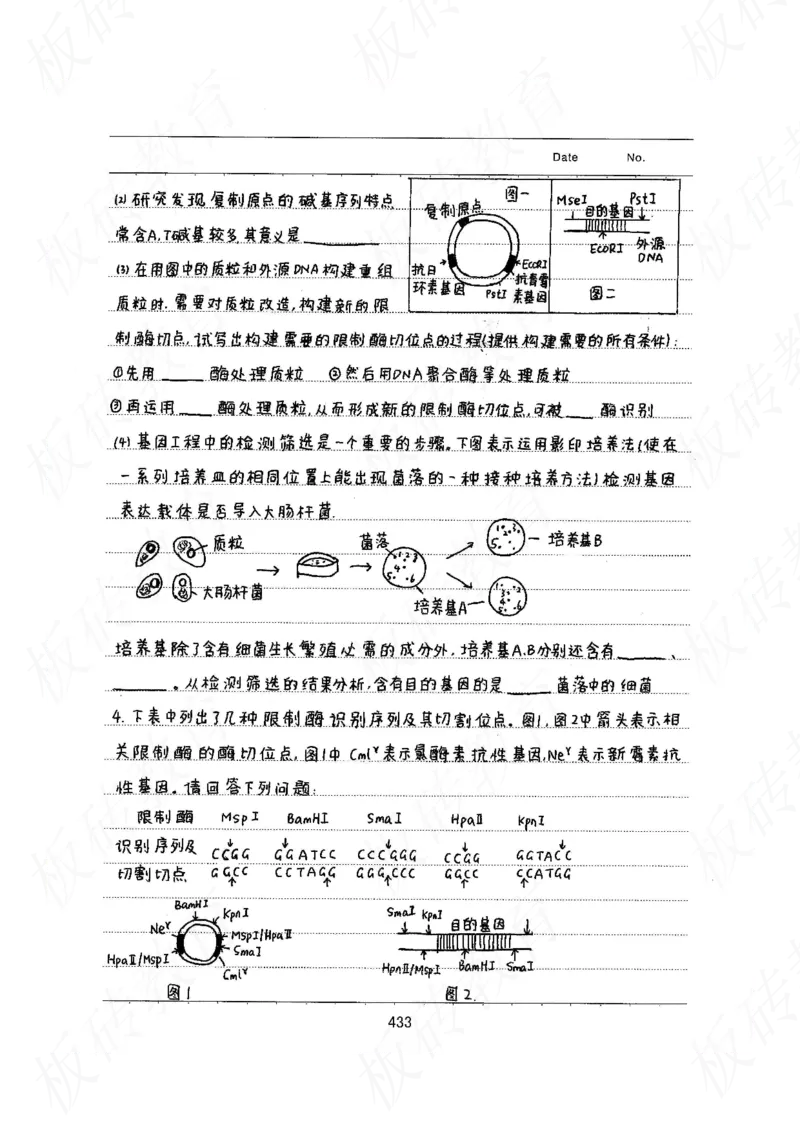 Date No.
(2)研究发现复制原点的碱基序列特点
常含A、T碱基较多其意义是______
(3)在用图中的质粒和外源DNA构建重组
质粒时.需要对质粒改造,构建新的限
制酶切点,试写出构建需要的限制酶切位点的过程(提供构建需要的所有条件):
①先用____酶处理质粒 ②然后用DNA聚合酶等处理质粒
③再运用____酶处理质粒,从而形成新的限制酶切位点,可被___酶识别
图一
复制原点
抗四
环素基因
PstI
EcoRI
抗青霉
素基因
MseI PstI
目的基因
EcoRI 外源
DNA
图二
(4)基因工程中的检测筛选是一个重要的步骤。下图表示运用影印培养法(使在
一系列培养皿的相同位置上能出现菌落的一种接种培养方法)检测基因
表达载体是否导入大肠杆菌.
质粒
大肠杆菌
菌落
培养基A
培养基B
培养基除了含有细菌生长繁殖必需的成分外,培养基A.B分别还含有______、
______。从检测筛选的结果分析,含有目的基因的是_____菌落中的细菌
4.下表中列出了几种限制酶识别序列及其切割位点。图1,图2中箭头表示相
关限制酶的酶切位点,图1中Cmlʳ表示氯酶素抗性基因,Neʳ表示新霉素抗
性基因。请回答下列问题:
限制酶 MspI BamHI SmaI HpaⅡ KpnI
识别序列及 CCGG GGATCC CCCGGG CCGG GGTACC
切割切点 GGCC CCTAGG GGGCCC GGCC CCATGG
BamHI
KpnI
Neʳ
MspI/HpaⅡ
SmaI
HpaⅡ/MspI
Cmlʳ
图1
SmaI KpnI
目的基因
HpnⅡ/MspI BamHI SmaI
图2.
433
板砖教育